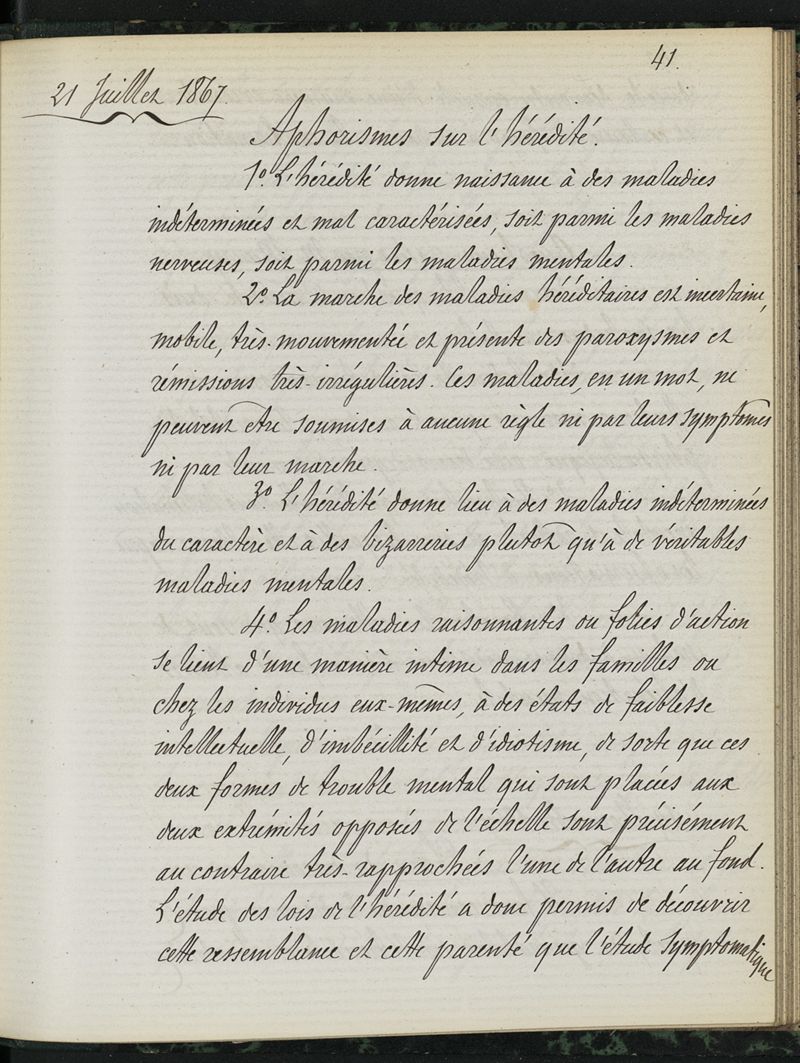 41.
21 Juillet 1867.
Aphorismes sur l'hérédité.
1º. L'hérédité donne naissance à des maladies
indéterminées et mal caractérisées, soit parmi les maladies
nerveuses, soit parmi les maladies mentales.
2º. La marche des maladies héréditaires est incertaine,
mobile, très-mouvementée et présente des paroxysmes et
rémissions très-irrégulières. Ces maladies, en un mot, ne
peuvent être soumises à aucune règle ni par leurs symptômes
ni par leur marche.
3º. L'hérédité donne lieu à des maladies indéterminées
du caractère et à des bizarreries plutôt qu'à de véritables
maladies mentales.
4º. Les maladies raisonnantes ou folies d'action
se lient d'une manière intime dans les familles ou
chez les individus eux-mêmes, à des états de faiblesse
intellectuelle, d'imbécillité et d'idiotisme, de sorte que ces
deux formes de trouble mental qui sont placées aux
deux extrémités opposées de l'échelle sont précisément
au contraire très-rapprochées l'une de l'autre au fond.
L'étude des lois de l'hérédité a donc permis de découvrir
cette ressemblance et cette parenté que l'étude symptomatique